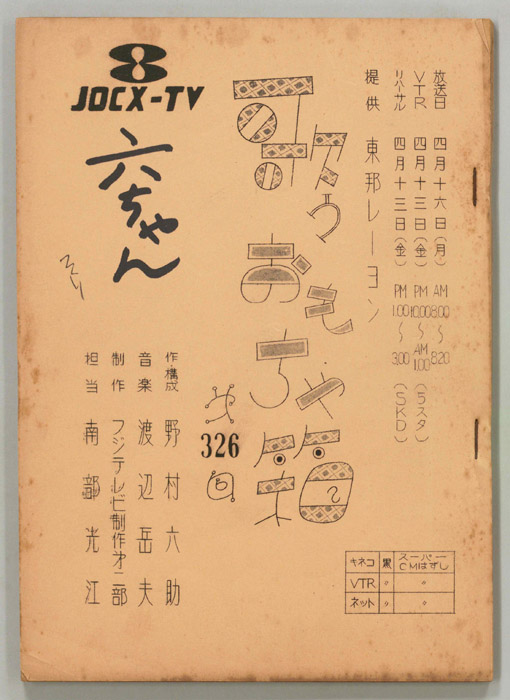 放送日 四月十六日(月) AM 8.00〜8.20
VTR 四月十三日(金) PM 10.00〜AM 1.00 (5スタ)
リハーサル 四月十三日(金) PM 1.00〜3.00 (SKD)
提供 東邦レーヨン
歌うおもちゃ箱
才326回
8
JOCX-TV
六ちゃん
作・構成 野村六助
音楽 渡辺岳夫
制作 フジテレビ制作才二部
担当 南部光江
キネコ 黒 スーパーCMはずし
VTR 〃 〃
ネット 〃 〃